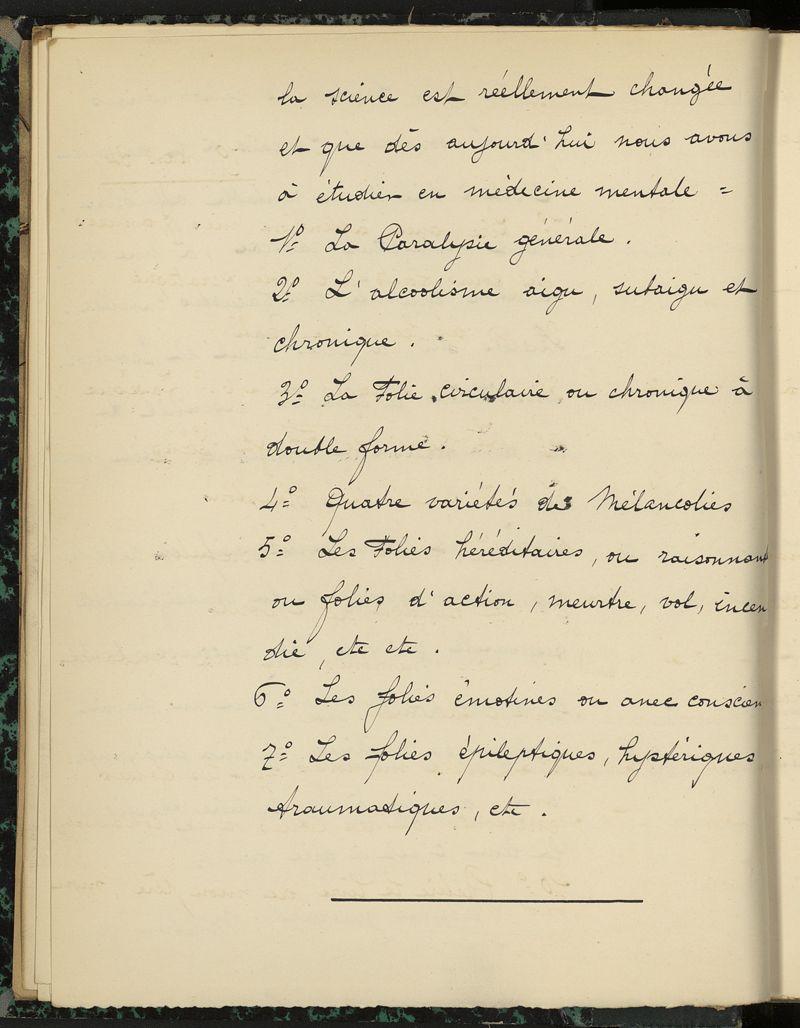 la science est réellement changée
et que dès aujourd'hui nous avons
à étudier en médecine mentale =
1º La Paralysie générale.
2º L'alcoolisme aigu, subaigu et
chronique.
3º La Folie circulaire ou chronique à
double forme.
4º Quatre variétés des Mélancolies
5º Les Folies héréditaires, ou raisonnant
ou folies d'action, meurtre, vol, incen
die, etc etc.
6º Les folies émotives ou avec conscien
7º Les folies épileptiques, hystériques
traumatiques, etc.